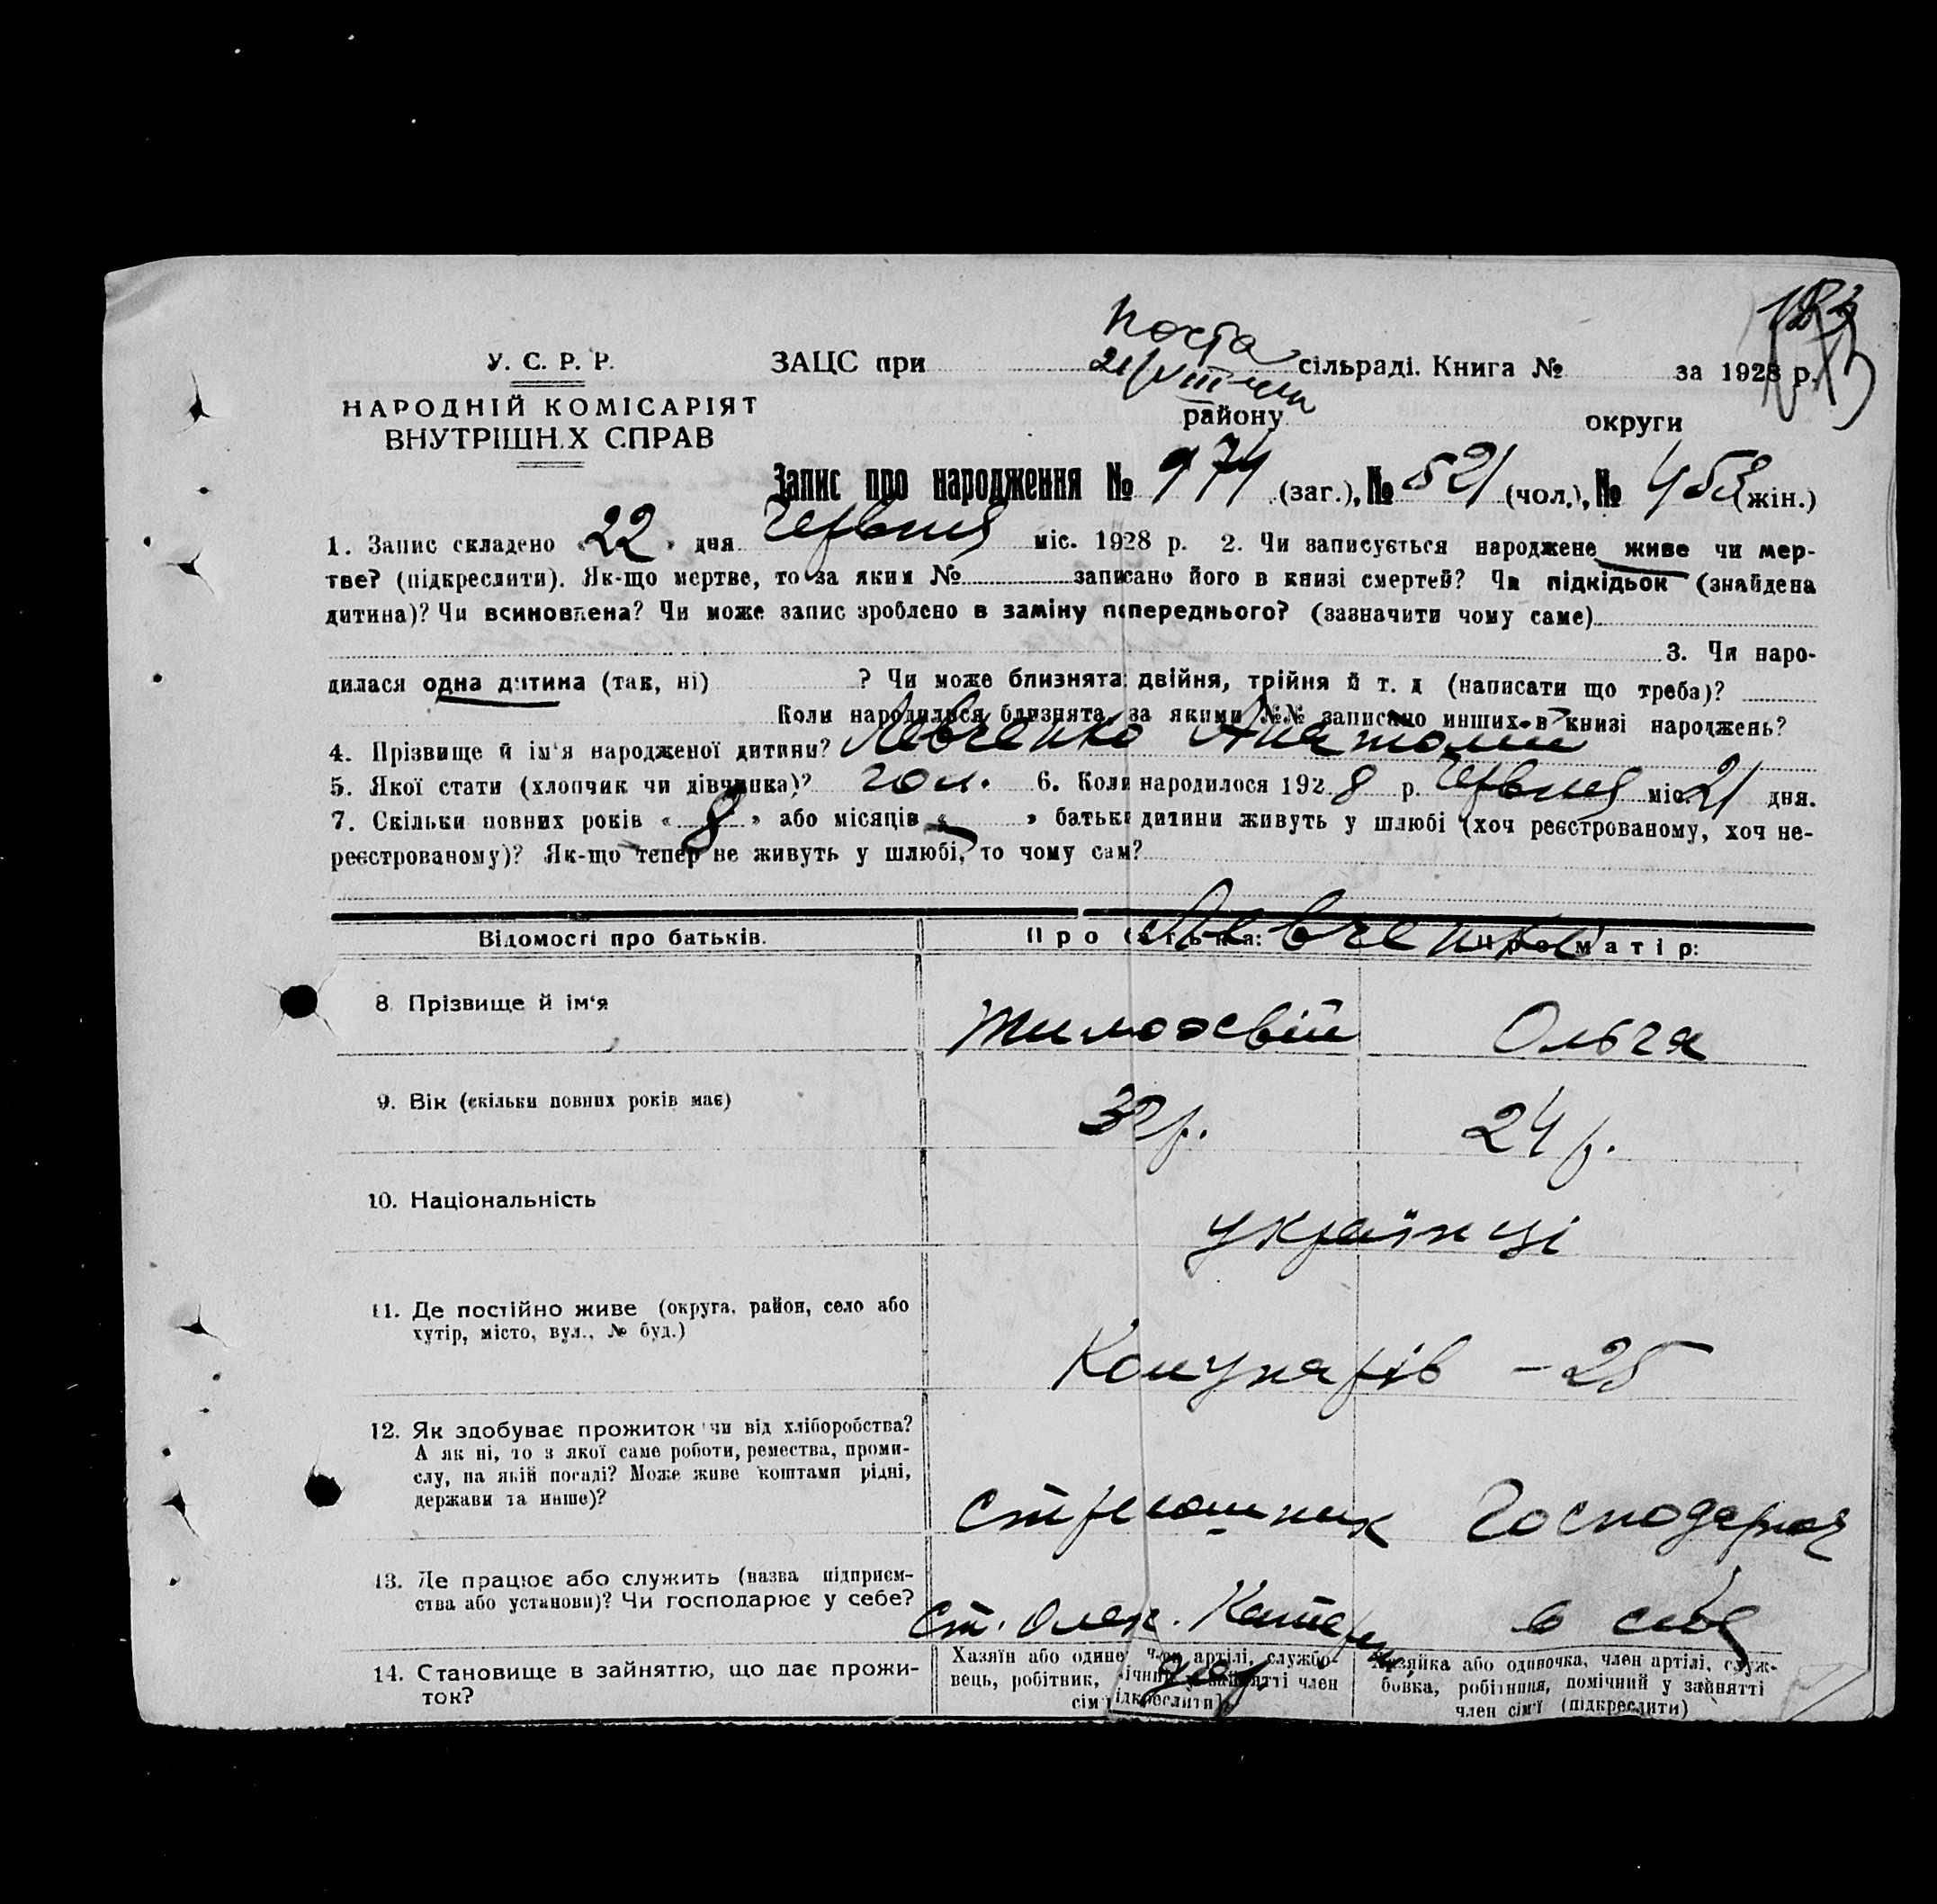 183
Пошта
У. С. Р. Р. ЗАЦС при 21/VIII сільраді. Книга № за 1928 р.
НАРОДНІЙ КОМІСАРІЯТ району округи
ВНУТРІШН.Х СПРАВ
Запис про народження № 974 (заг.), № 521 (чол.), № 453 (жін.)
1. Запис складено «22» дня Червня міс. 1928 р. 2. Чи записується народжене живе чи мер-
тве? (підкреслити). Як-що мертве, то за яким № записано його в книзі смертей? Чи підкідьок (знайдена
дитина)? Чи всиновлена? Чи може запис зроблено в заміну попереднього? (зазначити чому саме)
3. Чи наро-
дилася одна дитина (так, ні) ? Чи може близнята: двійня, трійня й т. д (написати що треба)?
Коли народилися близнята, за якими №№ записано инших в книзі народжень?
4. Прізвище й ім'я народженої дитини? Левченко Анатолий
5. Якої стати (хлопчик чи дівчинка)? чол. 6. Коли народилося 1928 р. Червня міс. 21 дня.
7. Скільки повних років «8» або місяців « » батьки дитини живуть у шлюбі (хоч реєстрованому, хоч не-
реєстрованому)? Як-що тепер не живуть у шлюбі, то чому сам?
Відомості про батьків. Про батька: Про матір:
Левченко
8 Прізвище й ім'я Тимофвій Ольга
9. Вік (скільки повних років має) 32 р. 24 р.
10. Національність українці
11. Де постійно живе (округа, район, село або
хутір, місто, вул., № буд.)
Комунарів – 25
12. Як здобуває прожиток чи від хліборобства?
А як ні, то з якої саме роботи, ремества, проми-
слу, на якій посаді? Може живе коштами рідні,
держави та инше)?
Господарює
13. Де працює або служить (назва підприєм-
ства або установи)? Чи господарює у себе?
Ст. Олек. Катер. в себе
14. Становище в зайняттю, що дає прожи-
ток?
Хазяїн або одине, член артілі, службо-
вець, робітник, помічний у зайнятті член
сім'ї (підкреслити)
Хазяйка або одиночка, член артілі, служ-
бовка, робітниця, помічний у зайнятті
член сім'ї (підкреслити)